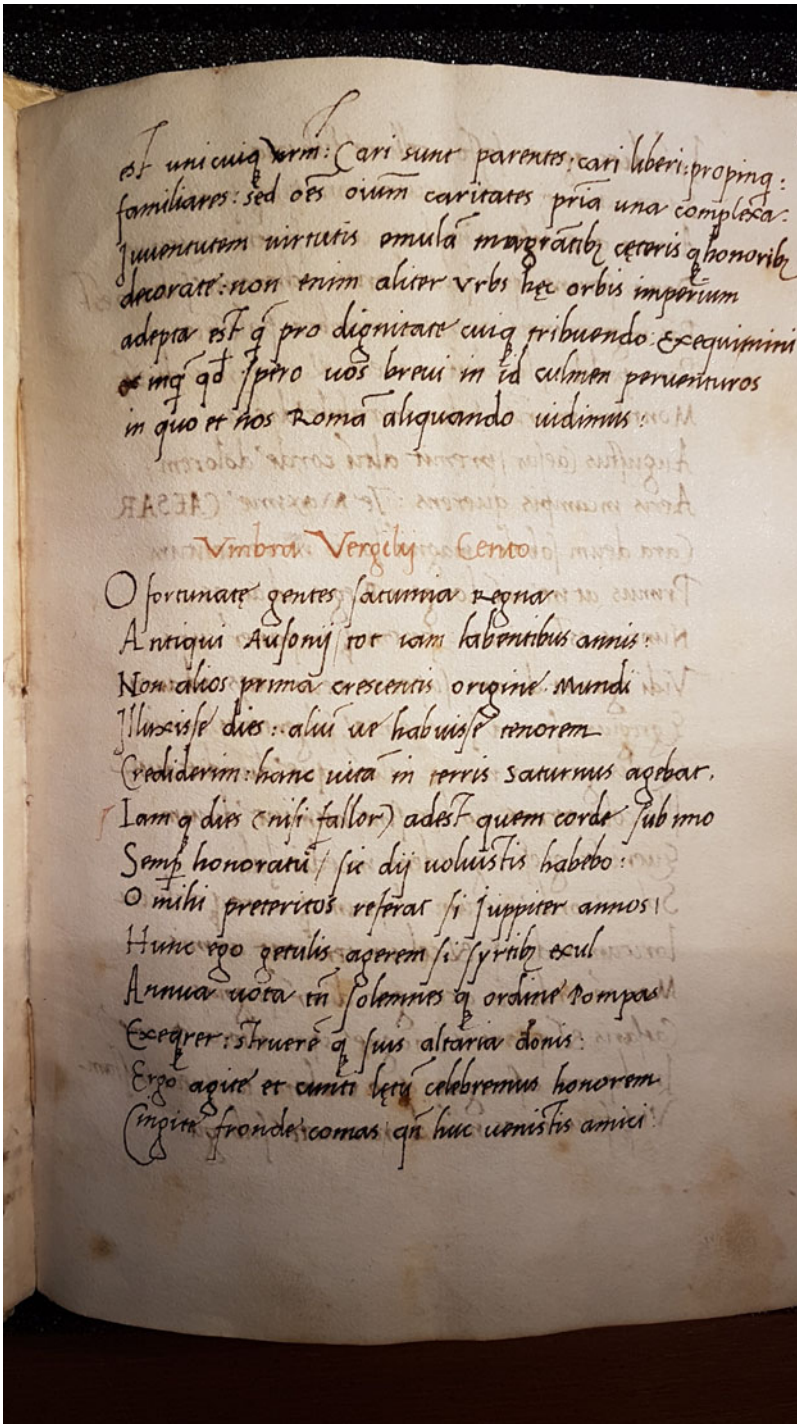 est unicuiq̨ vrm̃: Cari sunt parentes: cari liberi: propinq̨:
familiares: sed oẽs oium̃ caritates pria una complexa:
Iuuentutem uirtutis emulã cęteris q̨ honorib;
decorate: non enim aliter Vrbs hęc orbis imperium
adepta est q̃ pro dignitate cuiq̨ tribuendo. Exequimini
inq̃ qđ spero uos breui in id culmen peruenturos
in quo et nos Romã aliquando uidimus:
Vmbra Vergilij Cento
O fortunatę gentes saturnia Regna
Antiqui Ausonij tot iam labentibus annis:
Non alios prima crescentis origine Mundi
Illuxisse dies: aliũ ue habuisse tenorem
Crediderim: hanc uitã in terris Saturnus agebat.
Iam q̨ dies (nisi fallor) adest quem corde sub imo
Semp̱ honoratũ / sic dij uoluistis habebo:
O mihi preteritos referat si Juppiter annos!
Hunc ego getulis agerem si syrtib; exul
Annua uota tñ solemnes q̨ ordine Pompas
Exeq̨rer: struerẽ q̨ suis altaria donis:
Ergo agite et cuncti lętũ celebremus honorem
Cingite fronde comas qñ huc uenistis amici